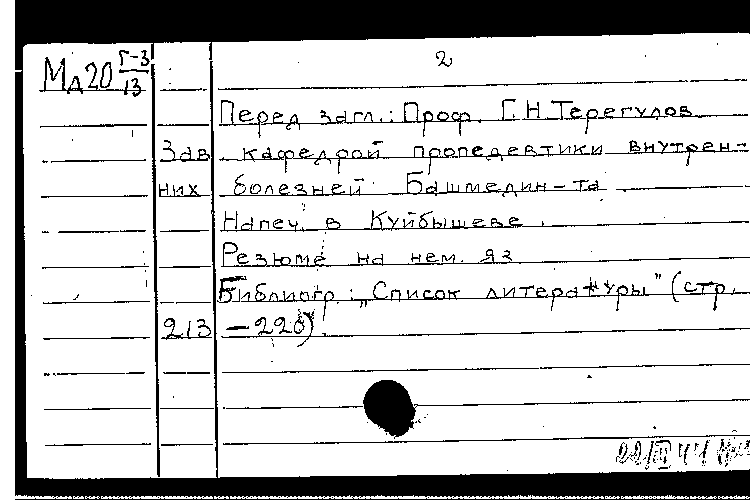 Мд20 Г-3/13
2
Перед загл.: Проф. Г.Н. Терегулов
Зав. кафедрой пропедевтики внутрен-
них болезней Башмедин-та
Напеч. в Куйбышеве.
Резюме на нем. яз.
Библиогр.: „Список литературы" (стр.
213 — 220).
22/III 44